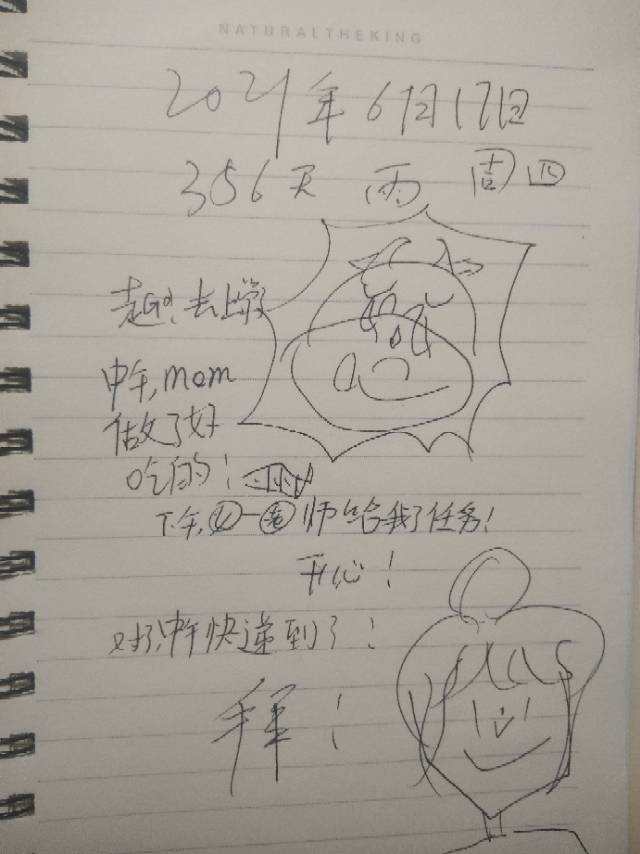 NATURALTHEKING
2021年6月17日
356天 雨 周四
起Go!去上学
中午,mom
做了好
吃的!
下午,一 师给我了任务!
开心!
对了,中午快递到了!
拜!